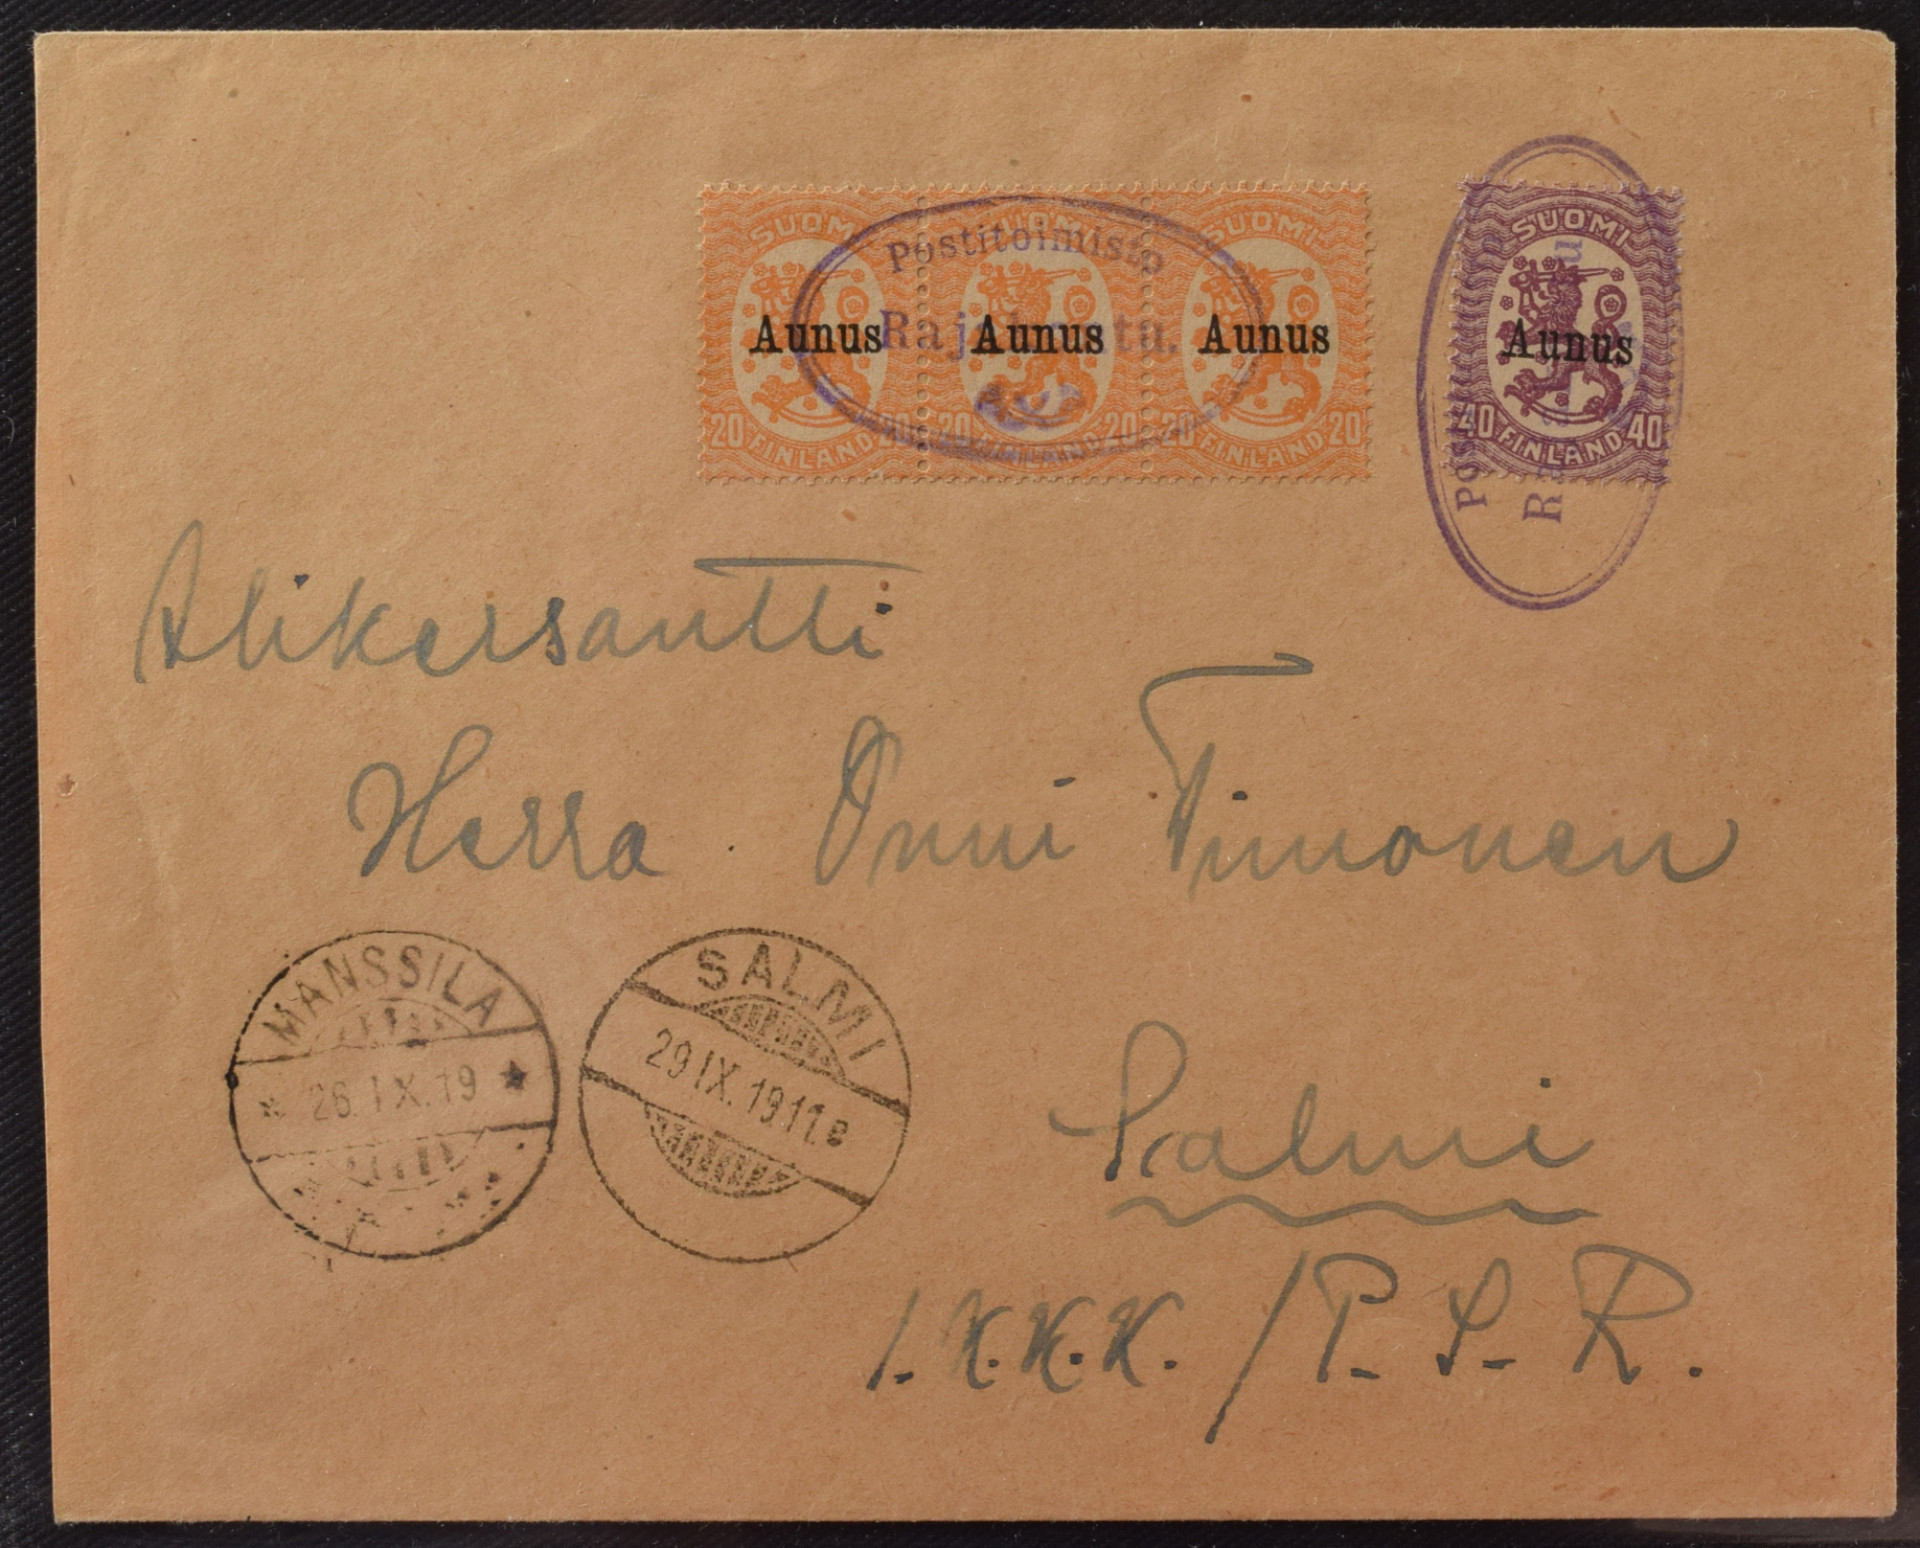 SUOMI SUOMI SUOMI
Aunus Aunus Aunus
20 FINLAND 20 20 FINLAND 20 20 FINLAND 20
Postitoimisto
SUOMI
Aunus
40 FINLAND 40
Alikersantti
Herra Onni Timonen
MANSSILA
26.IX.19
SALMI
29.IX.19.11.
Salmi
1.K.K.K. / P.S.R.